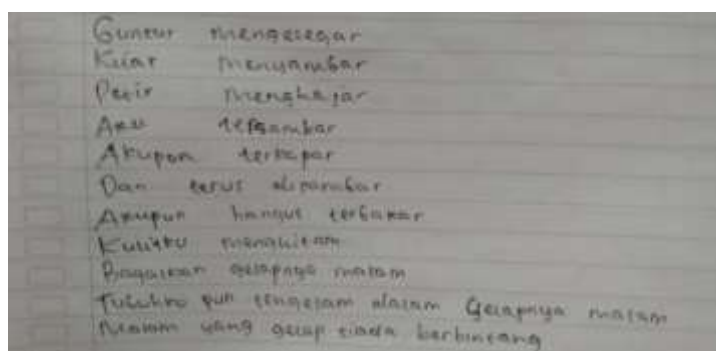 Guntur menggelegar
Kilat menyambar
Petir menghajar
Aku tersambar
Akupun terkapar
Dan terus disambar
Akupun hangus terbakar
Kulitku menghitam
Bagaikan gelapnya malam
Tubuhku pun tenggelam dalam Gelapnya malam
Malam yang gelap tiada berbintang